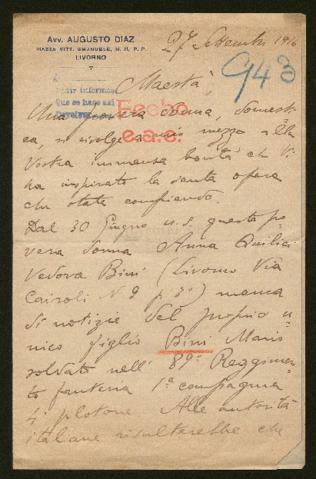 Avv. AUGUSTO DIAZ
PIAZZA VITT. EMANUELE, N. 11, P. P.
LIVORNO
27 Settembre 1916
943
Pedir informes
Que se hace así
Fecho
e.a.e.
Maestà,
Una povera donna, domesti
ca, si rivolge a mio mezzo alla
Vostra immensa bontà che Vi
ha inspirato la santa opera
che state compiendo.
Dal 30 Giugno u.s. questa po
vera donna Anna Quilici
Vedova Bini (Livorno Via
Cairoli N 9 p. 3º) manca
di notizie del proprio u
nico figlio Bini Mario
soldato nell' 89º Reggimen
to fanteria 1ª compagnia
4 plotone. Alle autorità
italiane risulterebbe che